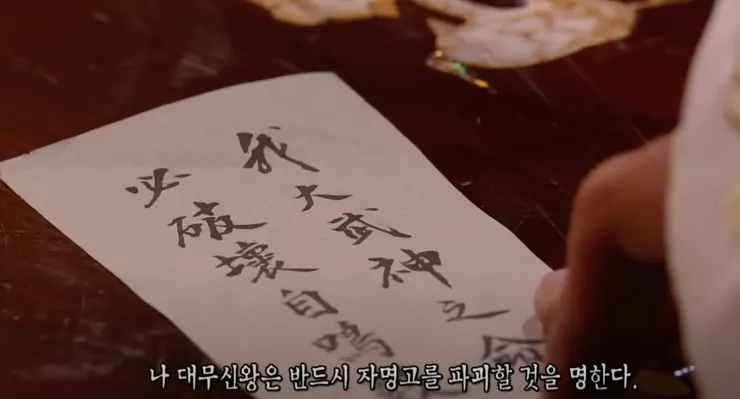 我大武神之
必破壞自鳴
나 대무신왕은 반드시 자명고를 파괴할 것을 명한다.